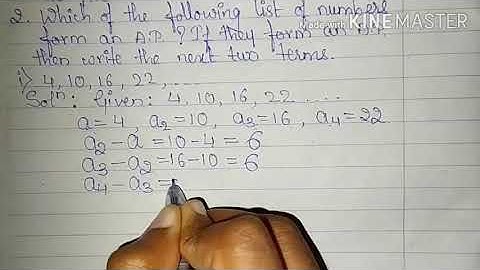 2. Which of the following list of numbers
form an A.P ? If they form an A.P,
then write the next two terms.
Made with KINEMASTER
i) 4, 10, 16, 22, .....
Solⁿ: Given: 4, 10, 16, 22 ....
a = 4, a₂ = 10, a₃ = 16, a₄ = 22
a₂ - a = 10 - 4 = 6
a₃ - a₂ = 16 - 10 = 6
a₄ - a₃ =